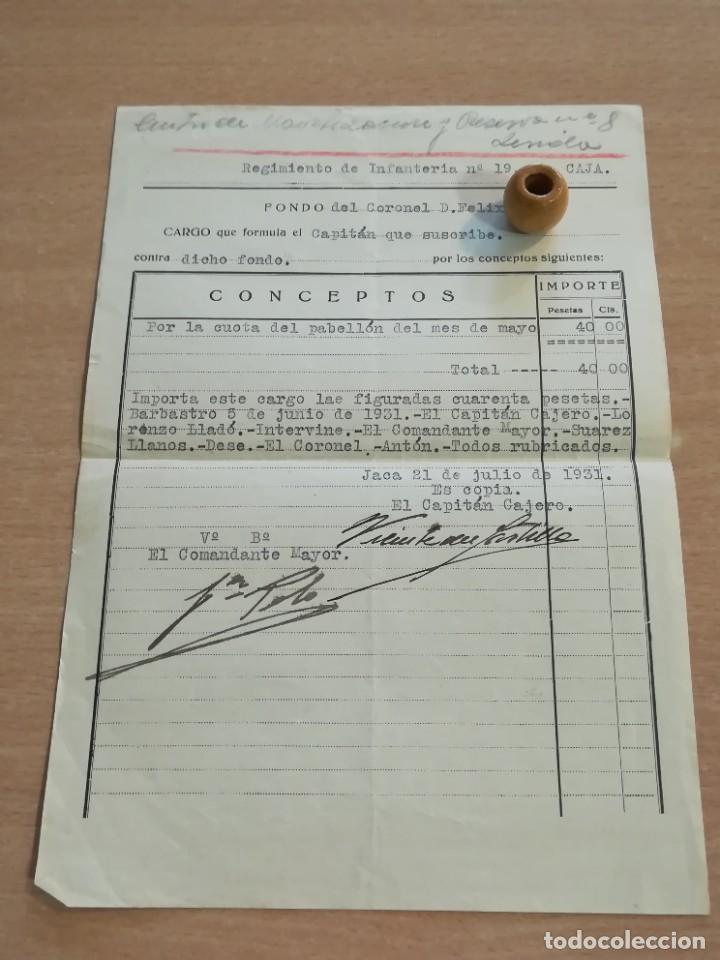 Centro de Movilización y Reserva nº 8
Lerida
Regimiento de Infanteria nº 19 CAJA.
FONDO del Coronel D.Felix
CARGO que formula el Capitán que suscribe.
contra dicho fondo. por los conceptos siguientes:
CONCEPTOS IMPORTE
Pesetas Cts.
Por la cuota del pabellón del mes de mayo 40 00
========
Total ----- 40 00
Importa este cargo lae figuradas cuarenta pesetas.-
Barbastro 5 de junio de 1931.-El Capitán Cajero.-Lo
renzo Lladó.-Intervine.-El Comandante Mayor.-Suarez
Llanos.-Dese.-El Coronel.-Antón.-Todos rubricados.
Jaca 21 de julio de 1931.
Es copia.
El Capitán Cajero.
Vº Bº
El Comandante Mayor.
todocoleccion
todocoleccion.net